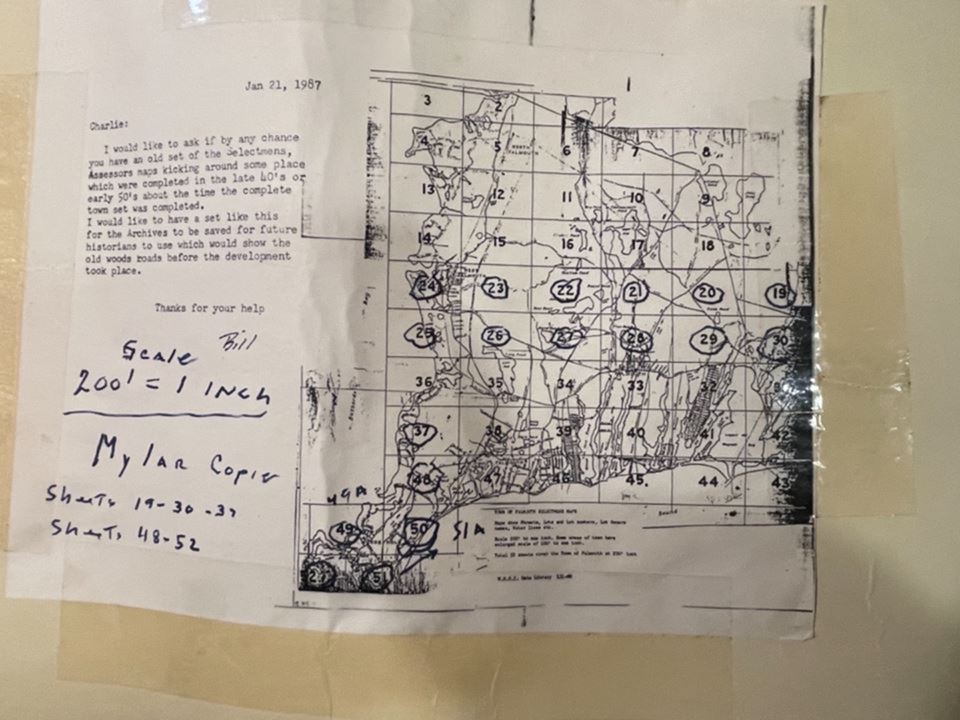 Jan 21, 1987
Charlie:
I would like to ask if by any chance
you have an old set of the Selectmens,
Assessors maps kicking around some place
which were completed in the late 40's or
early 50's about the time the complete
town set was completed.
I would like to have a set like this
for the Archives to be saved for future
historians to use which would show the
old woods roads before the development
took place.
Thanks for your help
Bill
Scale
200' = 1 INCH
Mylar Copies
Sheets 19-30-37
Sheets 48-52
3 2
4 5 6 7 8
NORTH FALMOUTH
13 12 11 10 9
14 15 16 17 18
24 23 22 21 20 19
25 26 27 28 29 30
36 35 34 33 32
37 38 39 40 41 42
48 47 46 45. 44 43
49A
49 50 51A
51
TOWN OF FALMOUTH SELECTMENS MAPS
Maps show Streets, Lots and Lot numbers, Lot Owners
names, Water lines etc.
Scale 200' to one inch. Some areas of town have
enlarged scale of 100' to one inch.
W.H.O.I. Data Library